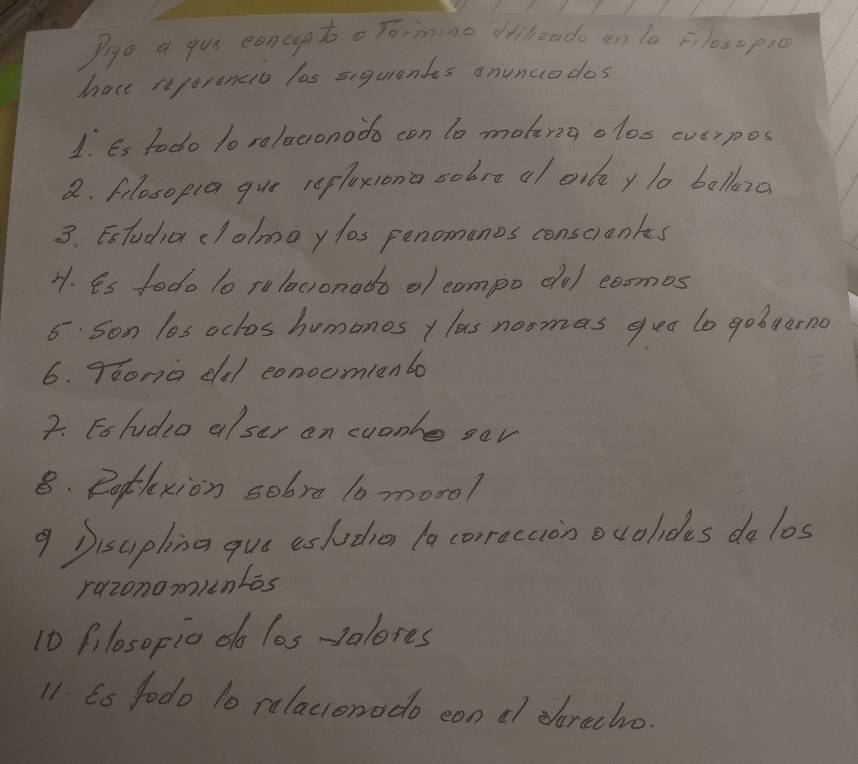 Diga a que concepto o Termino utilizado en la Filosofia
hace referencia los siguientes enunciados
1. Es todo lo relacionado con la materia o los cuerpos
2. filosofia que reflexiona sobre el arte y la belleza
3. Estudia el alma y los fenomenos conscientes
4. Es todo lo relacionado al campo del cosmos
5. Son los actos humanos y las normas que lo gobierna
6. Teoria del conocimiento
7. Estudia al ser en cuanto ser
8. Reflexión sobre la moral
9 Disciplina que estudia la corrección o validés de los
razonamientos
10 filosofia de los valores
11. Es todo lo relacionado con el derecho.